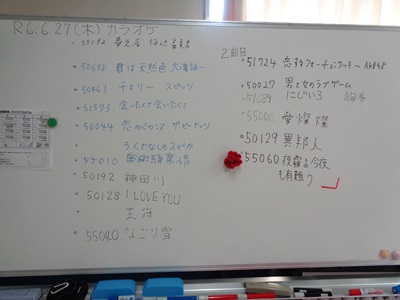 R6.6.27(木)カラオケ
50688 君は天然色 大瀧詠一
50461 チェリー スピッツ
51573 会いたくて会いたくて
50044 恋のバカンス ザ・ピーナッツ
ろくでなしのスピカ
55010
50192 神田川
50128 I LOVE YOU
王将
55040 なごり雪
2組目
51724 恋するフォーチュンクッキー AKB48
50027 男と女のラブゲーム
51689 にじいろ 絢香
55000 愛燦燦
50129 異邦人
55060 夜霧よ今夜
も有難う